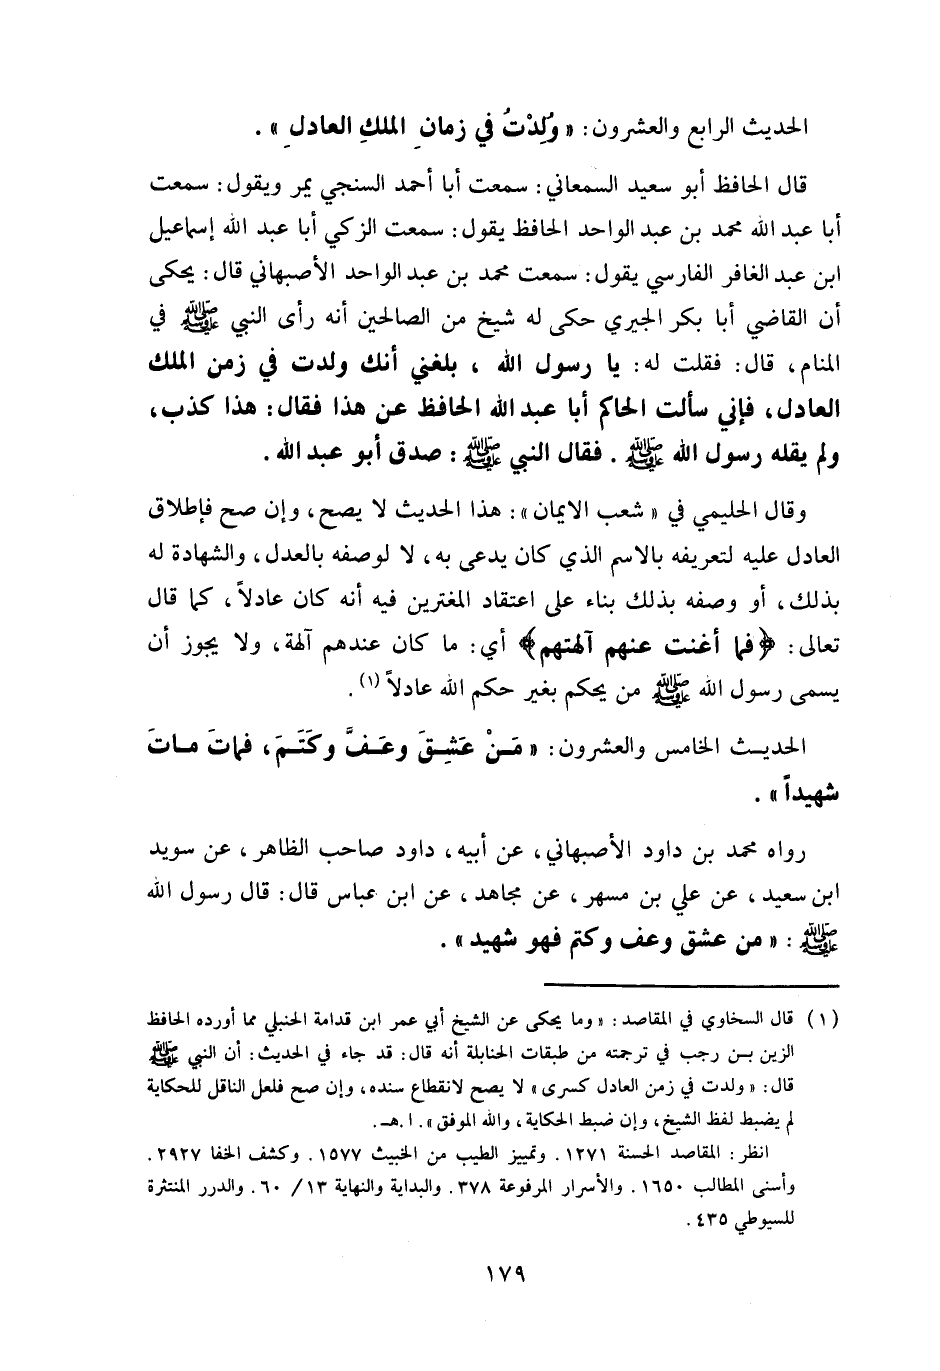 الحديث الرابع والعشرون: « وُلِدْتُ في زمانِ الملكِ العادلِ » .
قال الحافظ أبو سعيد السمعاني: سمعت أبا أحمد السنجي يمر ويقول: سمعت
أبا عبد الله محمد بن عبد الواحد الحافظ يقول: سمعت الزكي أبا عبد الله إسماعيل
ابن عبد الغافر الفارسي يقول: سمعت محمد بن عبد الواحد الأصبهاني قال: يحكى
أن القاضي أبا بكر الحيري حكى له شيخ من الصالحين أنه رأى النبي ﷺ في
المنام، قال: فقلت له: يا رسول الله ، بلغني أنك ولدت في زمن الملك
العادل، فإني سألت الحاكم أبا عبد الله الحافظ عن هذا فقال: هذا كذب،
ولم يقله رسول الله ﷺ . فقال النبي ﷺ : صدق أبو عبد الله.
وقال الحليمي في « شعب الايمان »: هذا الحديث لا يصح، وإن صح فإطلاق
العادل عليه لتعريفه بالاسم الذي كان يدعى به، لا لوصفه بالعدل، والشهادة له
بذلك، أو وصفه بذلك بناء على اعتقاد المغترين فيه أنه كان عادلاً، كما قال
تعالى: ﴿فما أغنت عنهم آلهتهم﴾ أي: ما كان عندهم آلهة، ولا يجوز أن
يسمى رسول الله ﷺ من يحكم بغير حكم الله عادلاً (١) .
الحديث الخامس والعشرون: « مَنْ عَشِقَ وعَفَّ وكَتَمَ، فماتَ ماتَ
شهيداً » .
رواه محمد بن داود الأصبهاني، عن أبيه، داود صاحب الظاهر، عن سويد
ابن سعيد، عن علي بن مسهر، عن مجاهد، عن ابن عباس قال: قال رسول الله
ﷺ : « من عشق وعف وكتم فهو شهيد » .
(١) قال السخاوي في المقاصد: « وما يحكى عن الشيخ أبي عمر ابن قدامة الحنبلي مما أورده الحافظ
الزين بن رجب في ترجمته من طبقات الحنابلة أنه قال: قد جاء في الحديث: أن النبي ﷺ
قال: « ولدت في زمن العادل كسرى » لا يصح لانقطاع سنده، وإن صح فلعل الناقل للحكاية
لم يضبط لفظ الشيخ، وإن ضبط الحكاية، والله الموفق ». ا.هـ.
انظر: المقاصد الحسنة ١٢٧١. وتمييز الطيب من الخبيث ١٥٧٧. وكشف الخفا ٢٩٢٧.
وأسنى المطالب ١٦٥٠. والأسرار المرفوعة ٣٧٨. والبداية والنهاية ١٣/ ٦٠. والدرر المنتثرة
للسيوطي ٤٣٥.
١٧٩